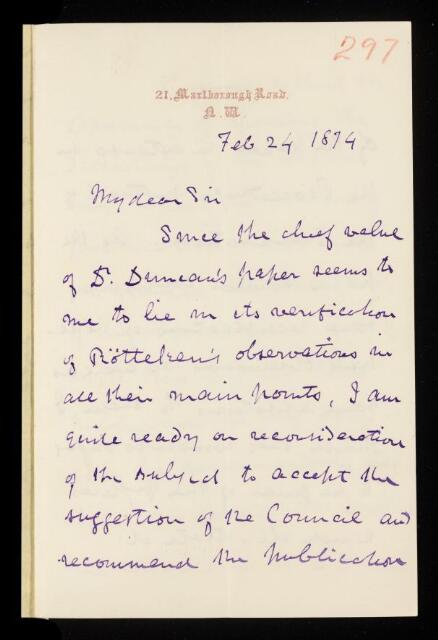 297
21, Marlborough Road,
N. W.
Feb 24 1874
My dear Sir
Since the chief value
of Dr. Duncan's paper seems to
me to lie in its verification
of Rötteken's observations in
all their main points, I am
quite ready on reconsideration
of the subject to accept the
suggestion of the Council and
recommend the publication